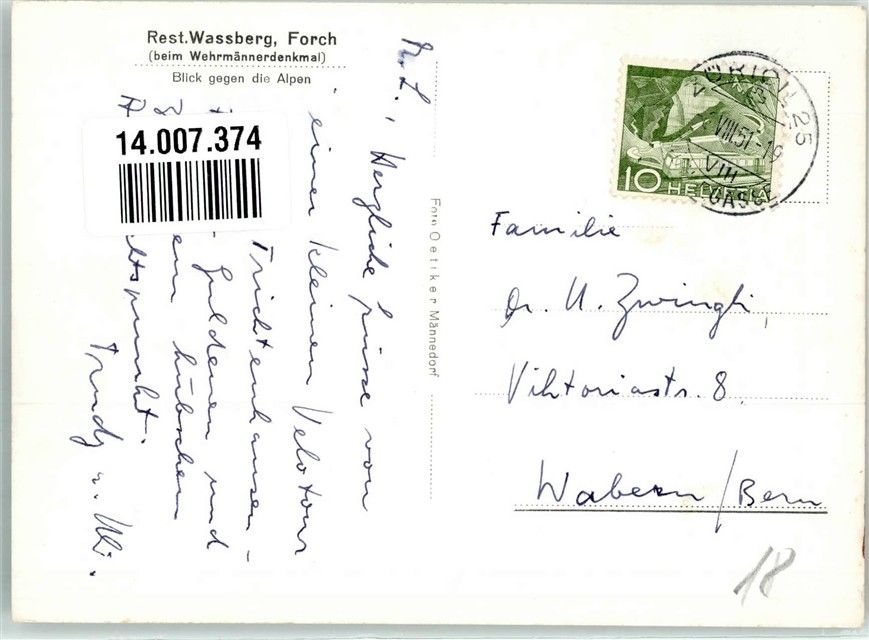 Rest.Wassberg, Forch
(beim Wehrmännerdenkmal)
Blick gegen die Alpen
14.007.374
M. L., Herzliche Grüsse von
einer kleinen Velotour
Trichtenhausen -
- Guldenen und
hübschen
Trudy u. Ueli.
Foto Oetiker Männedorf
10 HELVETIA
ZÜRICH 25
VIII.51-19
VIII
GASSE
Familie
Dr. U. Zwingli,
Viktoriastr. 8.
Wabern / Bern
18